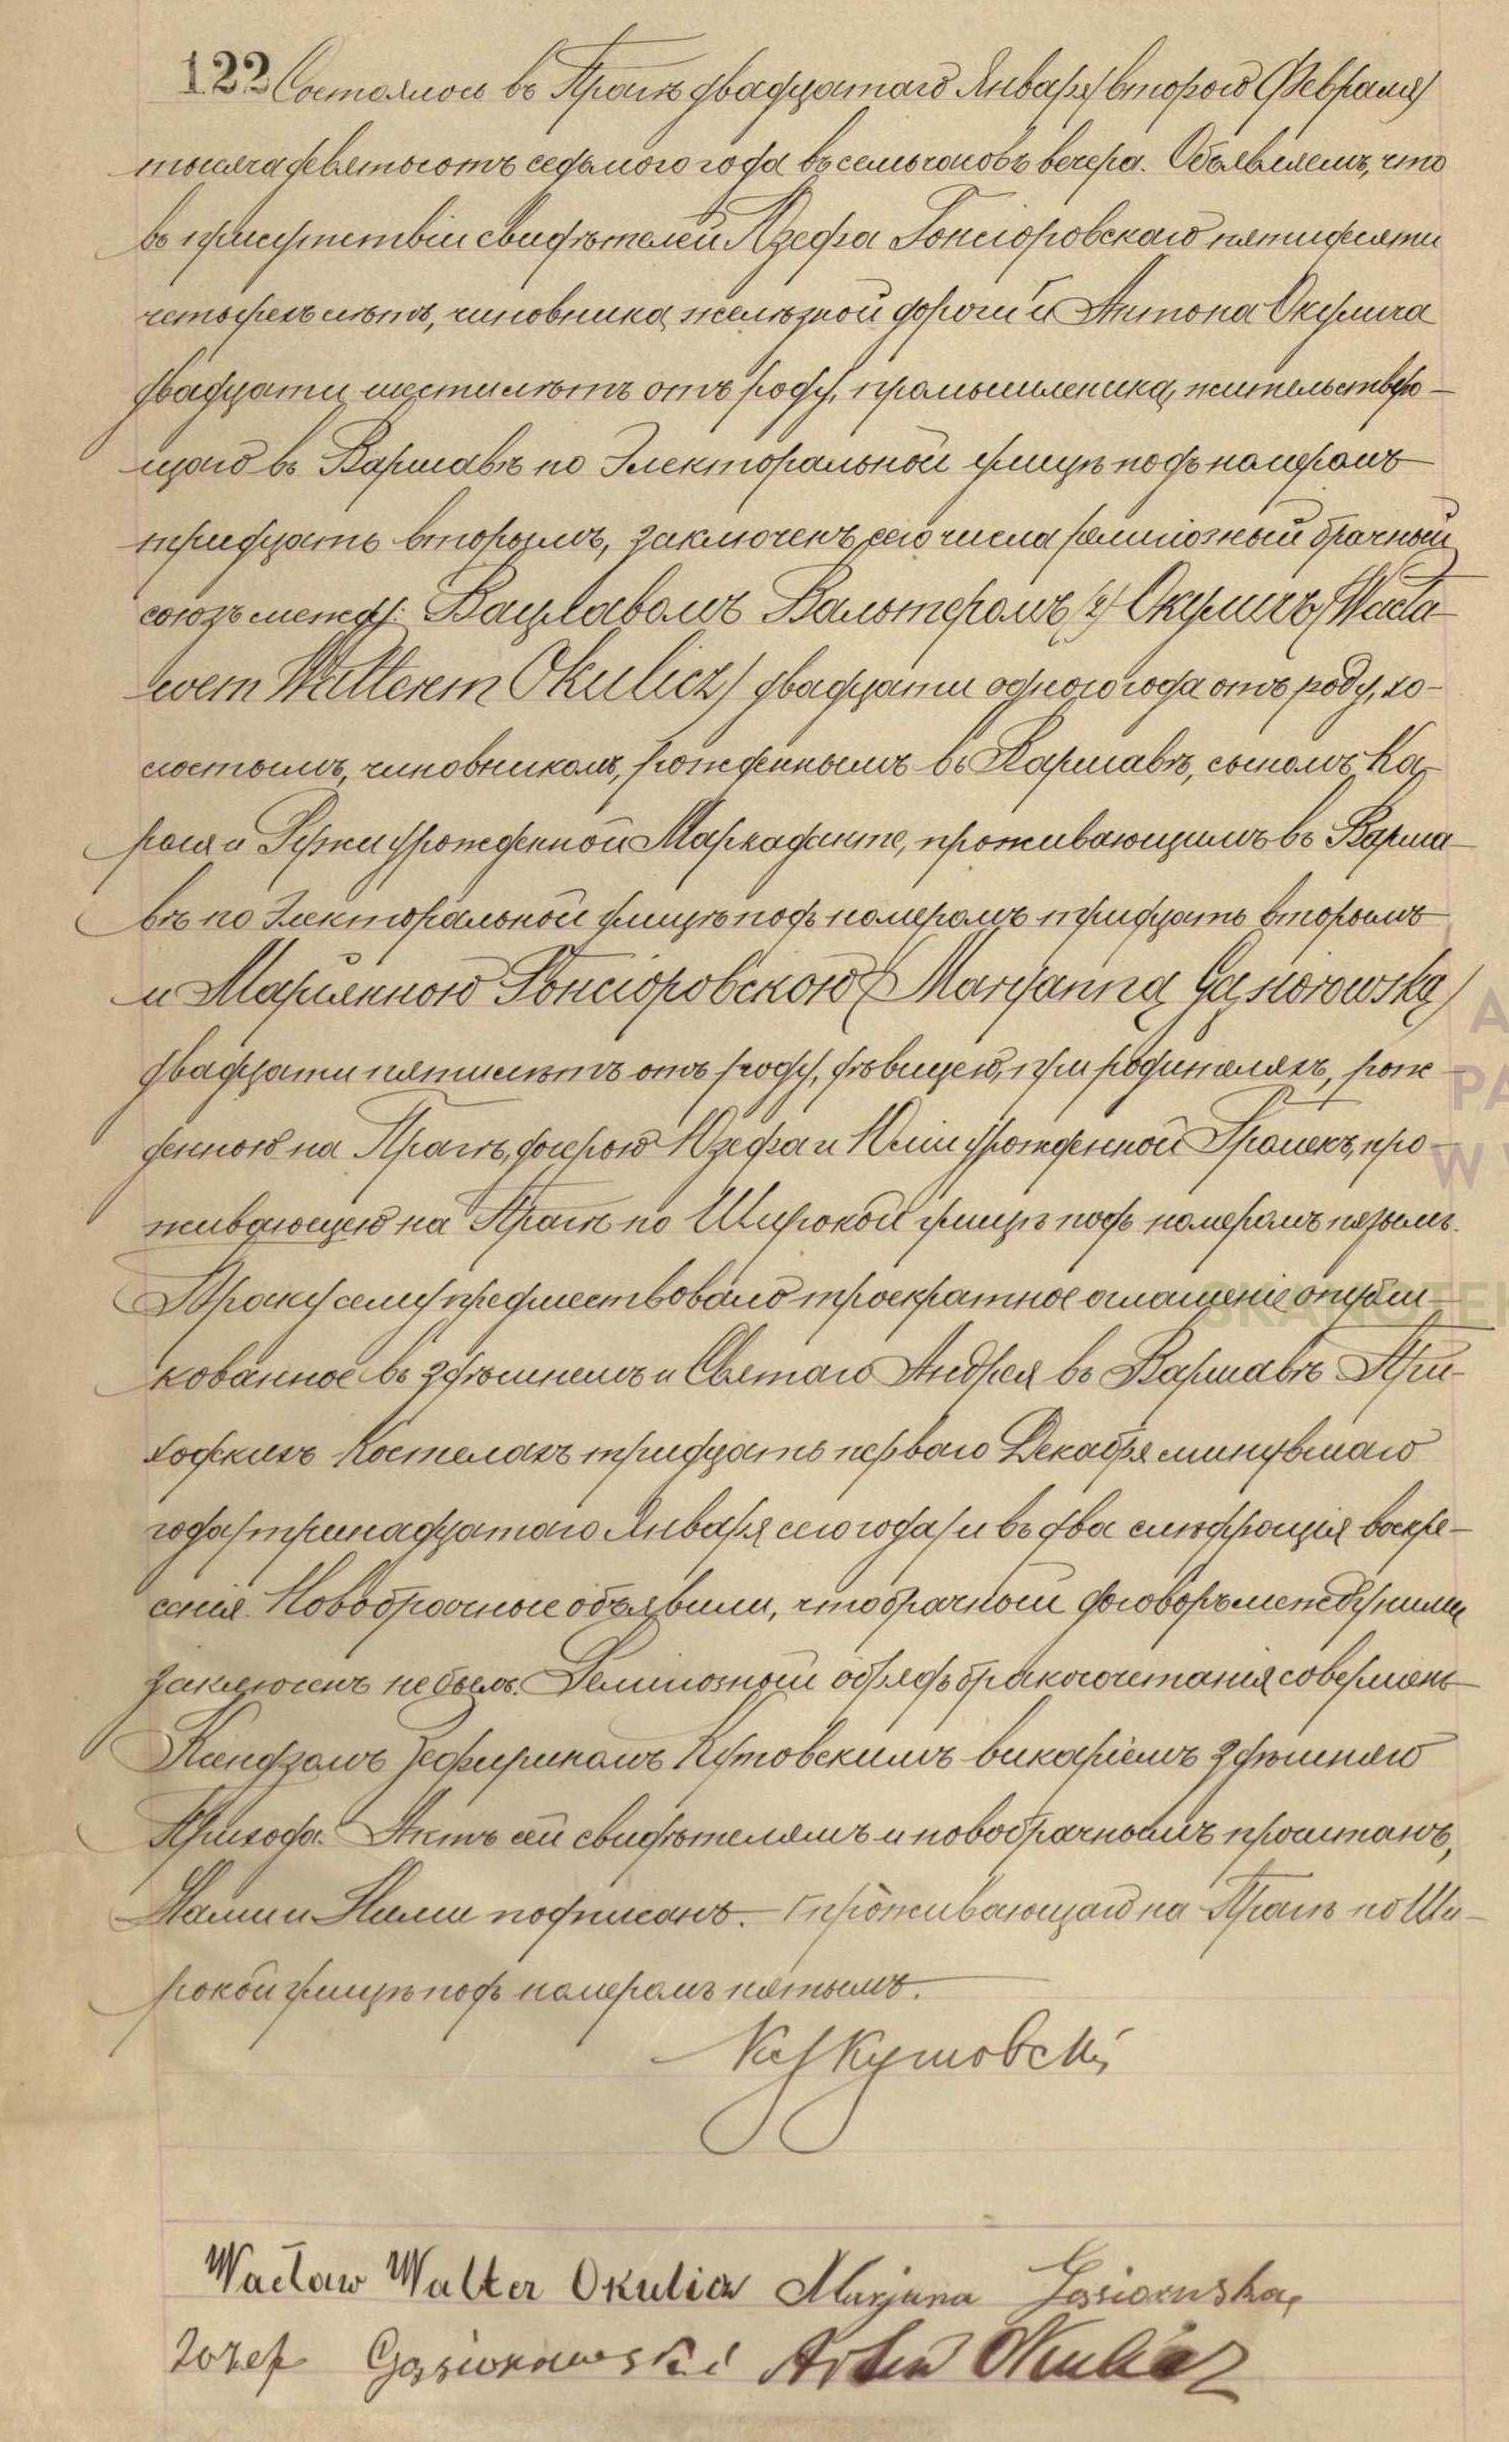 122 Состоялось въ Прагѣ двадцатаго Января /второго Февраля/
тысяча девятьсотъ седьмого года въ семь часовъ вечера. Объявляемъ, что
въ присутствіи свидѣтелей Юзефа Гонсіоровскаго пятидесяти
четырехъ лѣтъ, чиновника желѣзной дороги и Антона Окулича
двадцати шести лѣтъ отъ роду, промышленика, жительствую-
щаго въ Варшавѣ по Электоральной улицѣ подъ номеромъ
тридцать вторымъ, заключенъ сего числа религіозный брачный
союзъ между: Вацлавомъ Вальтеромъ /2/ Окуличъ /Wacła-
wem Walterem Okulicz/ двадцати одного года отъ роду, хо-
лостымъ, чиновникомъ, рожденнымъ въ Варшавѣ, сыномъ Ка-
роля и Ружи урожденной Маркаданте, проживающимъ въ Варша-
вѣ по Электоральной улицѣ подъ номеромъ тридцать вторымъ
и Маріянною Гонсіоровскою /Maryanną Gąsiorowską/
двадцати пяти лѣтъ отъ роду, дѣвицею, при родителяхъ, рож-
денною на Прагѣ, дочерью Юзефа и Юліи урожденной Громекъ, про-
живающею на Прагѣ по Широкой улицѣ подъ номеромъ пятымъ.
Браку сему предшествовало троекратное оглашеніе опубли-
кованное въ здѣшнемъ и Святаго Андрея въ Варшавѣ При-
ходскихъ Костелахъ тридцать перваго Декабря минувшаго
года /тринадцатаго Января сего года/ и въ два слѣдующія воскре-
сенія. Новобрачные объявили, что брачный договоръ между ними
заключенъ не былъ. Религіозный обрядъ бракосочетанія совершенъ
Ксендзомъ Зефириномъ Кутовскимъ викаріемъ здѣшняго
Прихода. Актъ сей свидѣтелямъ и новобрачнымъ прочитанъ,
Нами и Ними подписанъ. проживающаго на Прагѣ по Ши-
рокой улицѣ подъ номеромъ пятымъ.
Кутовскій
Wacław Walter Okulicz Marjana Gąsiorowska
Józef Gąsiorowski Antoni Okulicz